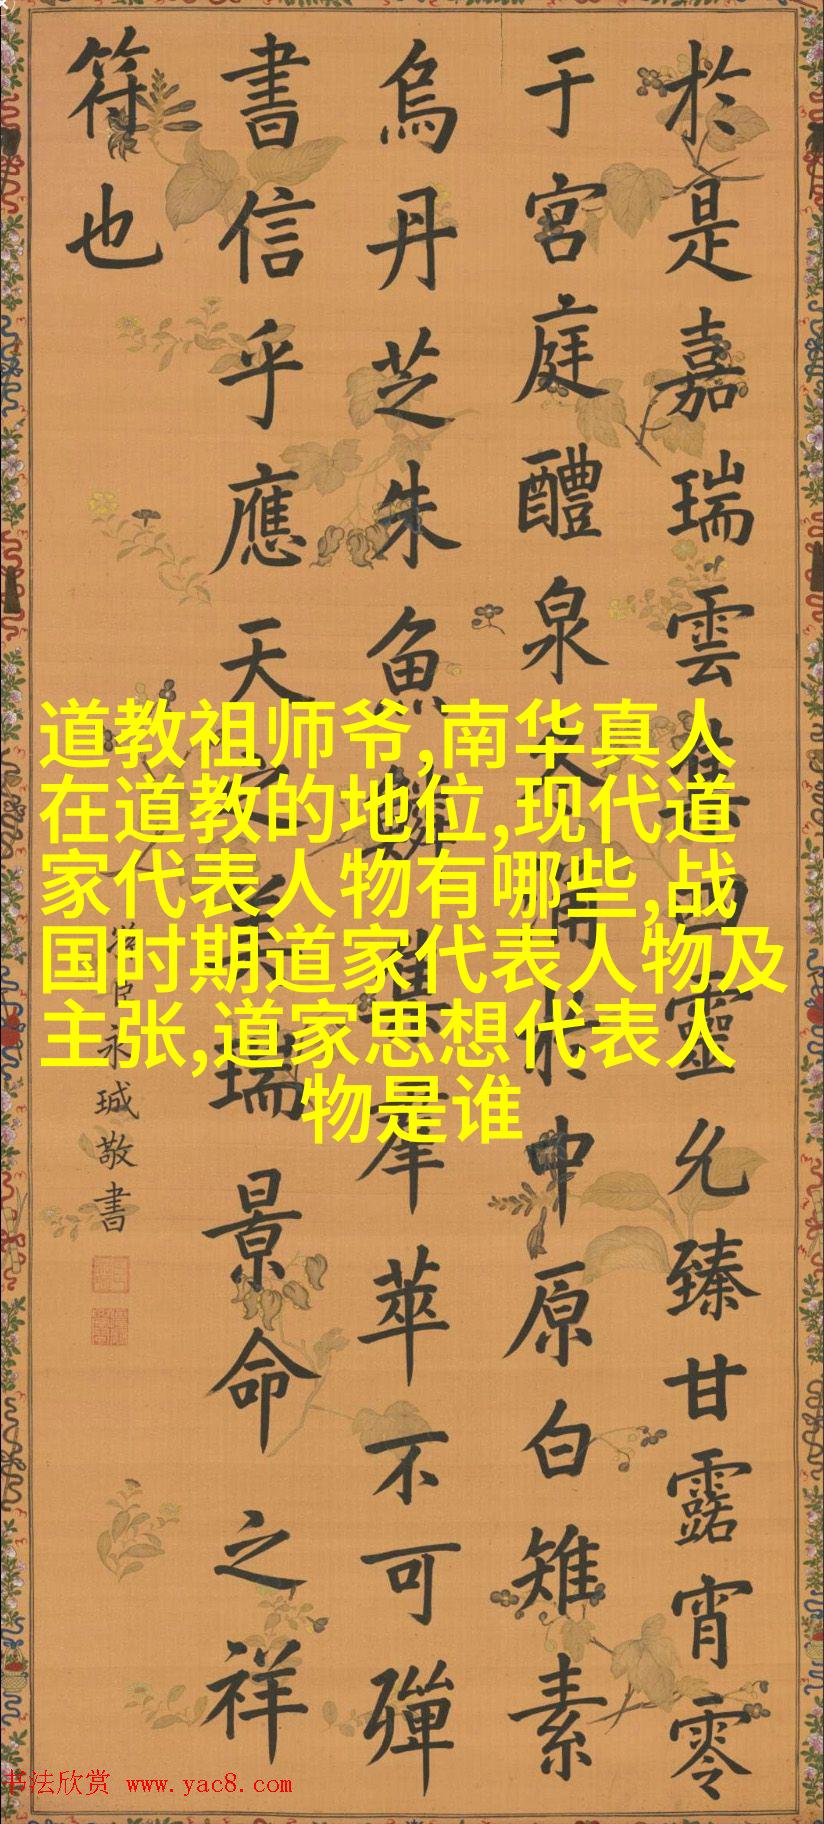 於是嘉瑞雲集四靈允臻甘露宵零
于宮庭醴泉冬涌於中原白雉素
烏丹芝朱魚鱗集羣萃不可殫
書信乎應天之美瑞景命之祥
符也
臣永珹敬書
道教祖师爷,南华真人
在道教的地位,现代道
家代表人物有哪些,战
国时期道家代表人物及
主张,道家思想代表人
物是谁
书法欣赏 www.yac8.com